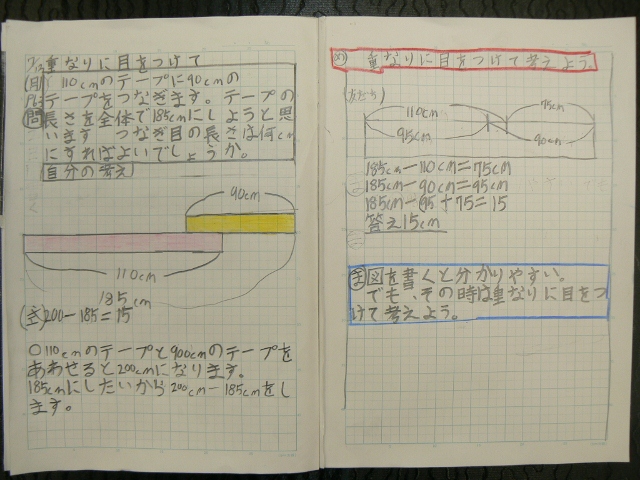 重なりに目をつけて
110cmのテープに90cmの
テープをつなぎます。テープの
問 長さを全体で185cmにしようと思
います つなぎ目の長さは何cm
にすればよいでしょうか。
自分の考え
90cm
110cm
185cm
200-185=15
○110cmのテープと900cmのテープを
あわせると200cmになります。
185cmにしたいから200cm-185cmをし
ます。
め 重なりに目をつけて考えよう。
友だち
110cm
75cm
95cm
90cm
185cm-110cm=75cm
185cm-90cm=95cm
185cm-95+75=15
答え15cm
ま 図を書くと分かりやすい。
でも、その時は重なりに目をつ
けて考えよう。